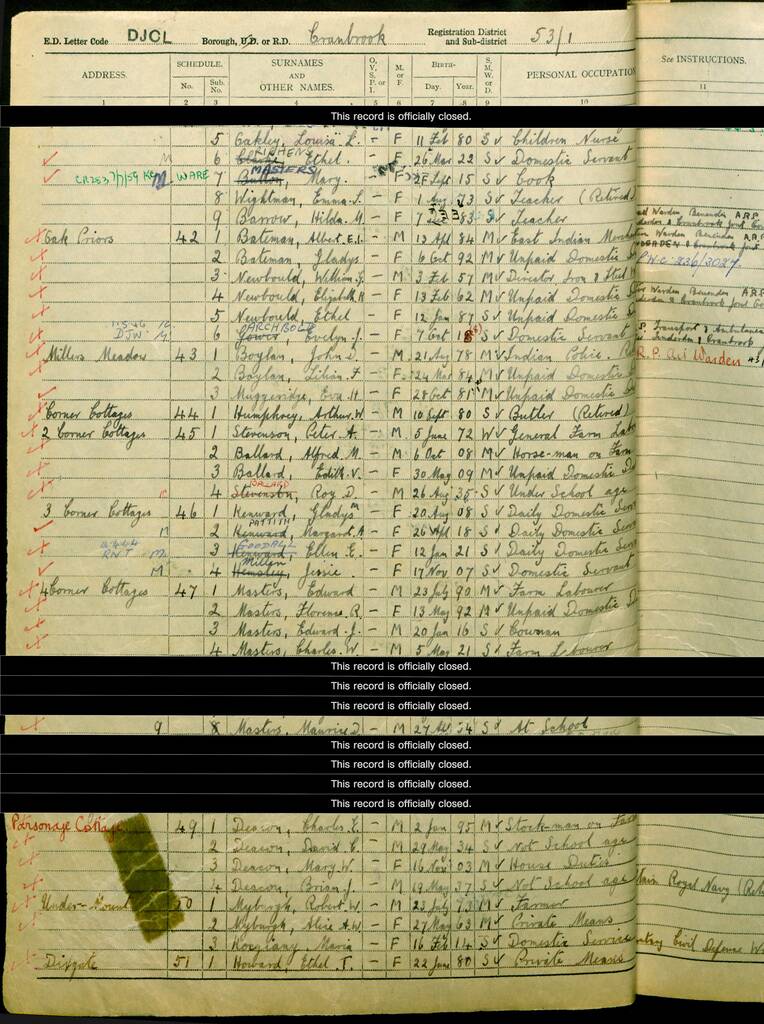 E.D. Letter Code DJCL Borough, U.D. or R.D. Cranbrook Registration District and Sub-district 53/1
ADDRESS. SCHEDULE. No. Sub. No. SURNAMES AND OTHER NAMES. O, V, S, P or I. M. or F. BIRTH- Day. Year. S. M. W. or D. PERSONAL OCCUPATION See INSTRUCTIONS.
1 2 3 4 5 6 7 8 9 10 11
This record is officially closed.
5 Oakley, Louisa L. – F 11 Feb 80 S Children Nurse
M 6 Ethel F 26 Mar 22 S Domestic Servant
CR283 7/7/59 M WARE 7 MASTERS Mary. F Sept 15 S Cook
8 Wightman, Emma S. – F 1 Aug 73 S Teacher (Retired)
9 Barrow, Hilda M. F 7 83 S Teacher
Oak Priors 42 1 Bateman, Albert E.I. – M 13 Apl 84 M East Indian Merchan
2 Bateman, Gladys – F 6 Oct 92 M Unpaid Domestic D
3 Newbould, William G. – M 3 Feb 57 M Director Iron & Steel
4 Newbould, Elizabeth H – F 13 Feb 62 M Unpaid Domestic
5 Newbould, Ethel F 12 Jan 87 S Unpaid Domestic
DJW M 6 ARCHBOLD Evelyn J. – F 7 Oct S Domestic Servant
Millers Meadow 43 1 Boylan, John D. – M 21 Aug 78 M Indian Police. R.P. Air Warden
2 Boylan, Lilian F – F 24 Mar 84 M Unpaid Domestic D
3 Muggeridge, Eva H. – F 28 Oct 81 M Unpaid Domestic D
Corner Cottages 44 1 Humphrey, Arthur W – M 10 Sept 80 S Butler (Retired)
2 Corner Cottages 45 1 Stevenson, Peter A. – M 5 June 72 W General Farm Labo
2 Ballard, Alfred M. – M 6 Oct 08 M Horse-man on Farm
3 Ballard, Edith V. – F 30 May 09 M Unpaid Domestic D
4 Stevenson, Roy D. – M 26 Aug 35 S Under School age
3 Corner Cottages 46 1 Kenward, Gladys M – F 20 Aug 08 S Daily Domestic Serv
M 2 Kenward, Margaret A – F 26 Apl 18 S Daily Domestic Serv
RNT M 3 Kenward, GOODALL Ellen E. – F 12 Jan 21 S Daily Domestic Serv
M 4 Hemsley, Millen Jessie. – F 17 Nov 07 S Domestic Servant
4 Corner Cottages 47 1 Masters, Edward – M 23 July 90 M Farm Labourer
2 Masters, Florence R. – F 13 May 92 M Unpaid Domestic D
3 Masters, Edward J. – M 20 Jan 16 S Cowman
4 Masters, Charles W. – M 5 May 21 S Farm Labourer
This record is officially closed.
This record is officially closed.
This record is officially closed.
9 8 Masters, Maurice D. – M 27 34 S At School
This record is officially closed.
This record is officially closed.
This record is officially closed.
This record is officially closed.
Parsonage Cottage 49 1 Deacon, Charles E. – M 2 Jan 95 M Stock-man on Fa
2 Deacon, David C – M 29 May 34 S Not School age
3 Deacon, Mary W. – F 16 Nov 03 M House Duties
4 Deacon, Brian J. – M 19 May 37 S Not School age
Under-Mount 50 1 Myburgh, Robert W. – M 23 July 73 M Farmer
2 Myburgh, Alice A.W. – F 27 May 63 M Private Means
3 Maria – F 16 Feb 14 S Domestic Service
51 1 Howard, Ethel T. – F 22 June 80 S Private Means